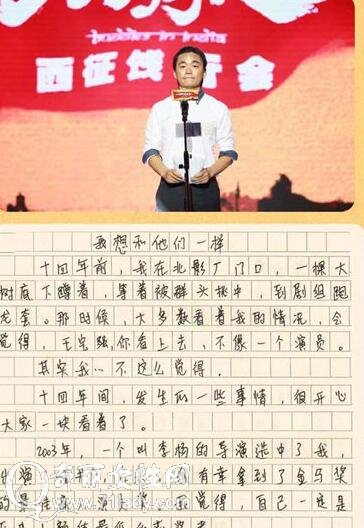 buddies in india
西征饯行会
我想和他们一样
十四年前,我在北影厂门口,一棵大
树底下蹲着,等着被群头挑中,到剧组跑
龙套。那时候,大多数看着我的情况,会
觉得,王宝强你看上去,不像一个演员。
其实我…不这么觉得。
十四年间,发生了一些事情,很开心
大家一块看着了。
2003年,一个叫李杨的导演选中了我,
出演 有幸拿到了金马奖
的最佳 觉得,自己一定是